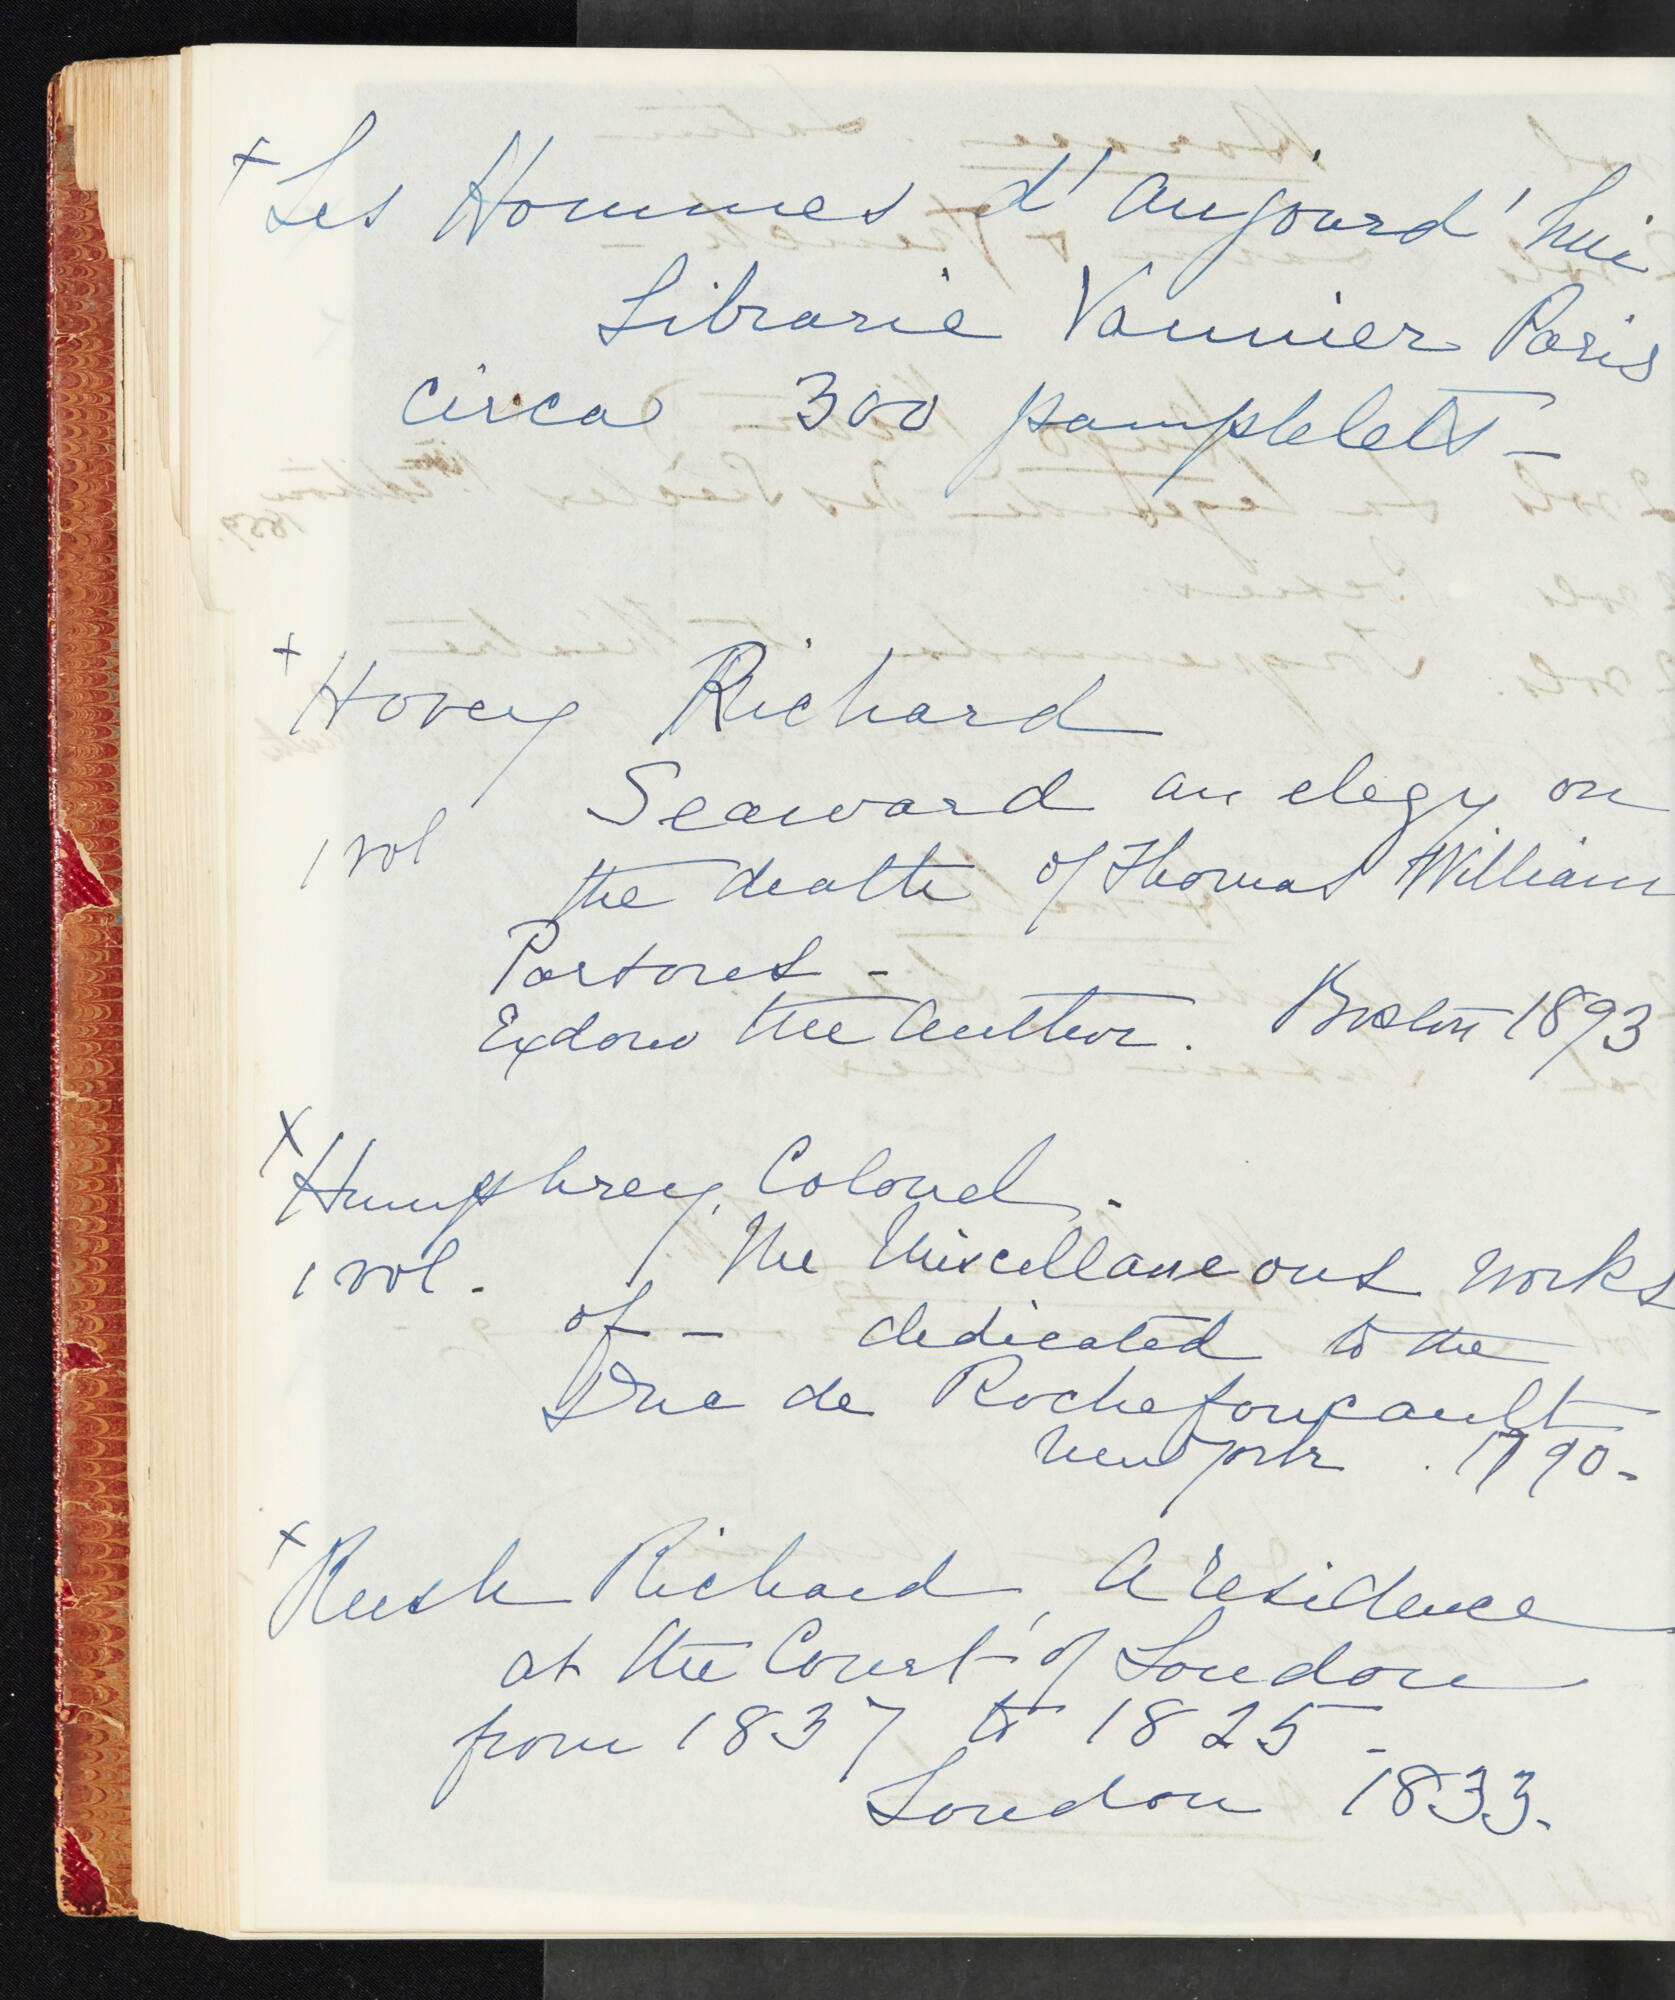 + Les Hommes d'aujourd'hui
Librarie Vannier Paris
circa 300 pamplelets -
+ Hovey Richard
Seaward an elegy on
1 vol
the death of Thomas William
Parsons -
Exdono the author. Boston 1893
x Humphrey, Colonel -
1 vol. - The Miscellaneous works
of - dedicated to the
Duc de Rochefoucault
New York . 1790 -
+ Rush Richard, A residence
at the Court of London
from 1837 to 1825 -
London 1833.